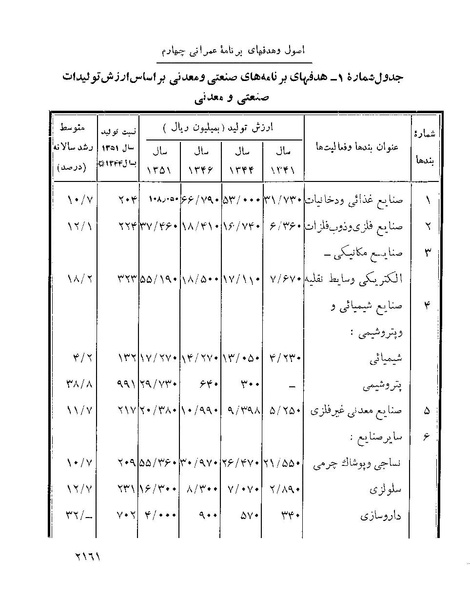 اصول وهدفهای برنامهٔ عمرانی چهارم
جدول شمارهٔ ۱ـ هدفهای برنامه‌های صنعتی ومعدنی براساس ارزش تولیدات
صنعتی و معدنی
شمارهٔ بندها عنوان بندها وفعالیت‌ها ارزش تولید (بمیلیون ریال) نسبت تولید سال ۱۳۵۱ بسال ۱۳۴۴ متوسط رشد سالانه (درصد)
سال ۱۳۴۱ سال ۱۳۴۴ سال ۱۳۴۶ سال ۱۳۵۱
۱ صنایع غذائی ودخانیات ۳۱/۷۳۰ ۵۳/۰۰۰ ۶۶/۷۹۰ ۱۰۸٫۰۵۰ ۲۰۴ ۱۰/۷
۲ صنایع فلزی وذوب فلزات ۶/۳۶۰ ۱۶/۷۴۰ ۱۸/۴۱۰ ۳۷/۴۶۰ ۲۲۴ ۱۲/۱
۳ صنایع مکانیکی ـ
الکتریکی وسایط نقلیه ۷/۶۷۰ ۱۷/۱۱۰ ۱۸/۵۰۰ ۵۵/۱۹۰ ۳۲۳ ۱۸/۲
۴ صنایع شیمیائی و
وپتروشیمی :
شیمیائی ۴/۲۳۰ ۱۳/۰۵۰ ۱۴/۲۷۰ ۱۷/۲۷۰ ۱۳۲ ۴/۲
پتروشیمی – ۳۰۰ ۶۴۰ ۲۹/۷۳۰ ۹۹۱ ۳۸/۸
۵ صنایع معدنی غیرفلزی ۵/۲۵۰ ۹/۳۹۸ ۱۰/۹۹۰ ۲۰/۳۸۰ ۲۱۷ ۱۱/۷
۶ سایرصنایع :
نساجی وپوشاك چرمی ۲۱/۵۵۰ ۲۶/۴۷۰ ۳۰/۹۷۰ ۵۵/۳۶۰ ۲۰۹ ۱۰/۷
سلولزی ۲/۸۹۰ ۷/۰۷۰ ۸/۳۰۰ ۱۶/۳۰۰ ۲۳۱ ۱۲/۷
داروسازی ۳۴۰ ۵۷۰ ۹۰۰ ۴/۰۰۰ ۷۰۲ ۳۲/–
۲۱۶۱